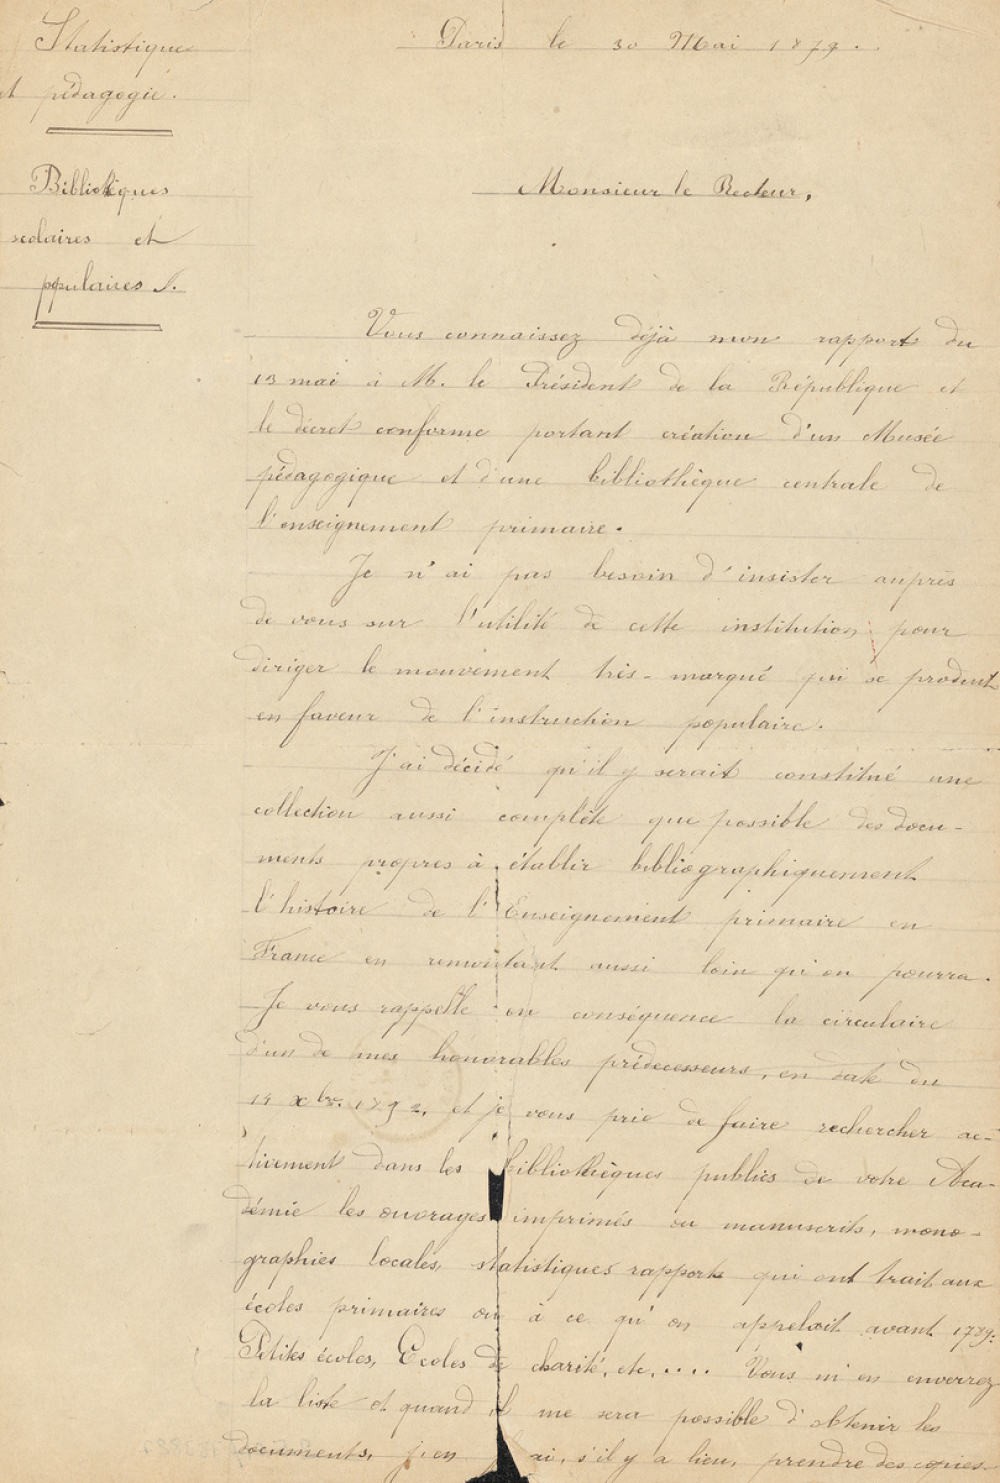 Statistique
et pédagogie.
Bibliotèques
scolaires et
populaires
Paris le 30 Mai 1879.
Monsieur le Recteur,
Vous connaissez déjà mon rapport du
13 mai à M. le Président de la République et
le décret conforme portant création d'un Musée
pédagogique et d'une bibliothèque centrale de
l'enseignement primaire.
Je n'ai pas besoin d'insister auprès
de vous sur l'utilité de cette institution pour
diriger le mouvement très-marqué qui se produit
en faveur de l'instruction populaire.
J'ai décidé qu'il y serait constitué une
collection aussi complète que possible des docu-
ments propres à établir bibliographiquement
l'histoire de l'Enseignement primaire en
France en remontant aussi loin qu'on pourra.
Je vous rappelle en conséquence la circulaire
d'un de mes honorables prédecesseurs, en date du
et je vous prie de faire rechercher ac-
tivement dans les bibliothèques publics de votre Aca-
démie les ouvrages imprimés ou manuscrits, mono-
graphies locales, statistiques rapports qui ont trait aux
écoles primaires ou à ce qu'on appelait avant 1789.
Petites écoles, Ecoles de charité, etc.... Vous m'en enverrez
la liste et quand il me sera possible d'obtenir les
documents, j'en ai, s'il y a lieu, prendre des copies